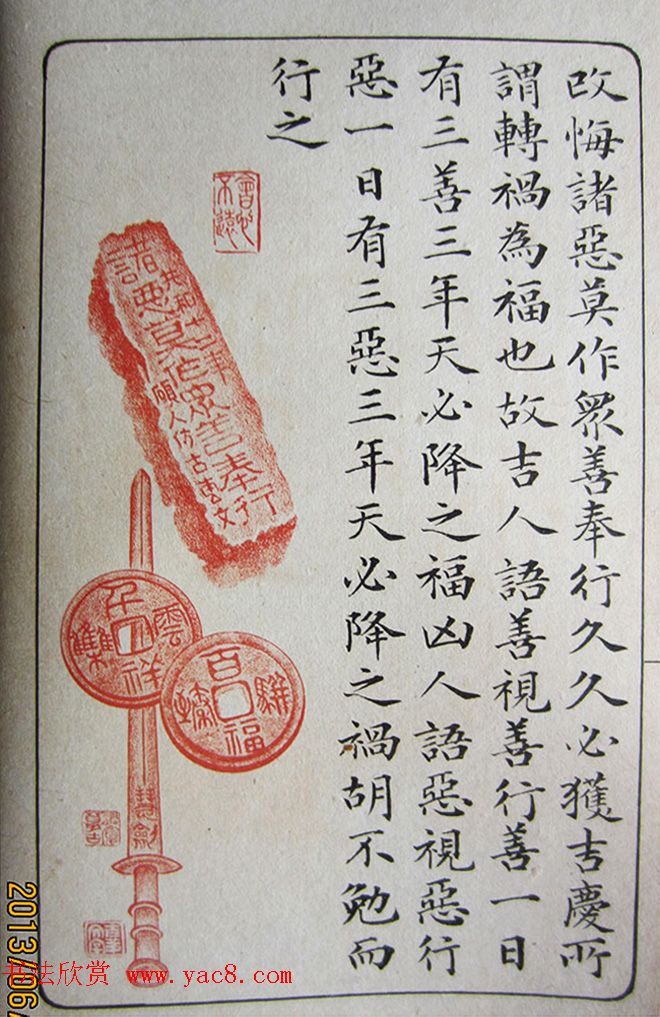 改悔諸惡莫作衆善奉行久久必獲吉慶所
謂轉禍為福也故吉人語善視善行善一日
有三善三年天必降之福凶人語惡視惡行
惡一日有三惡三年天必降之禍胡不勉而
行之
諸惡莫作衆善奉行
千祥雲集
百福駢臻
慧劍
2013/06/
书法欣赏 www.yac8.com